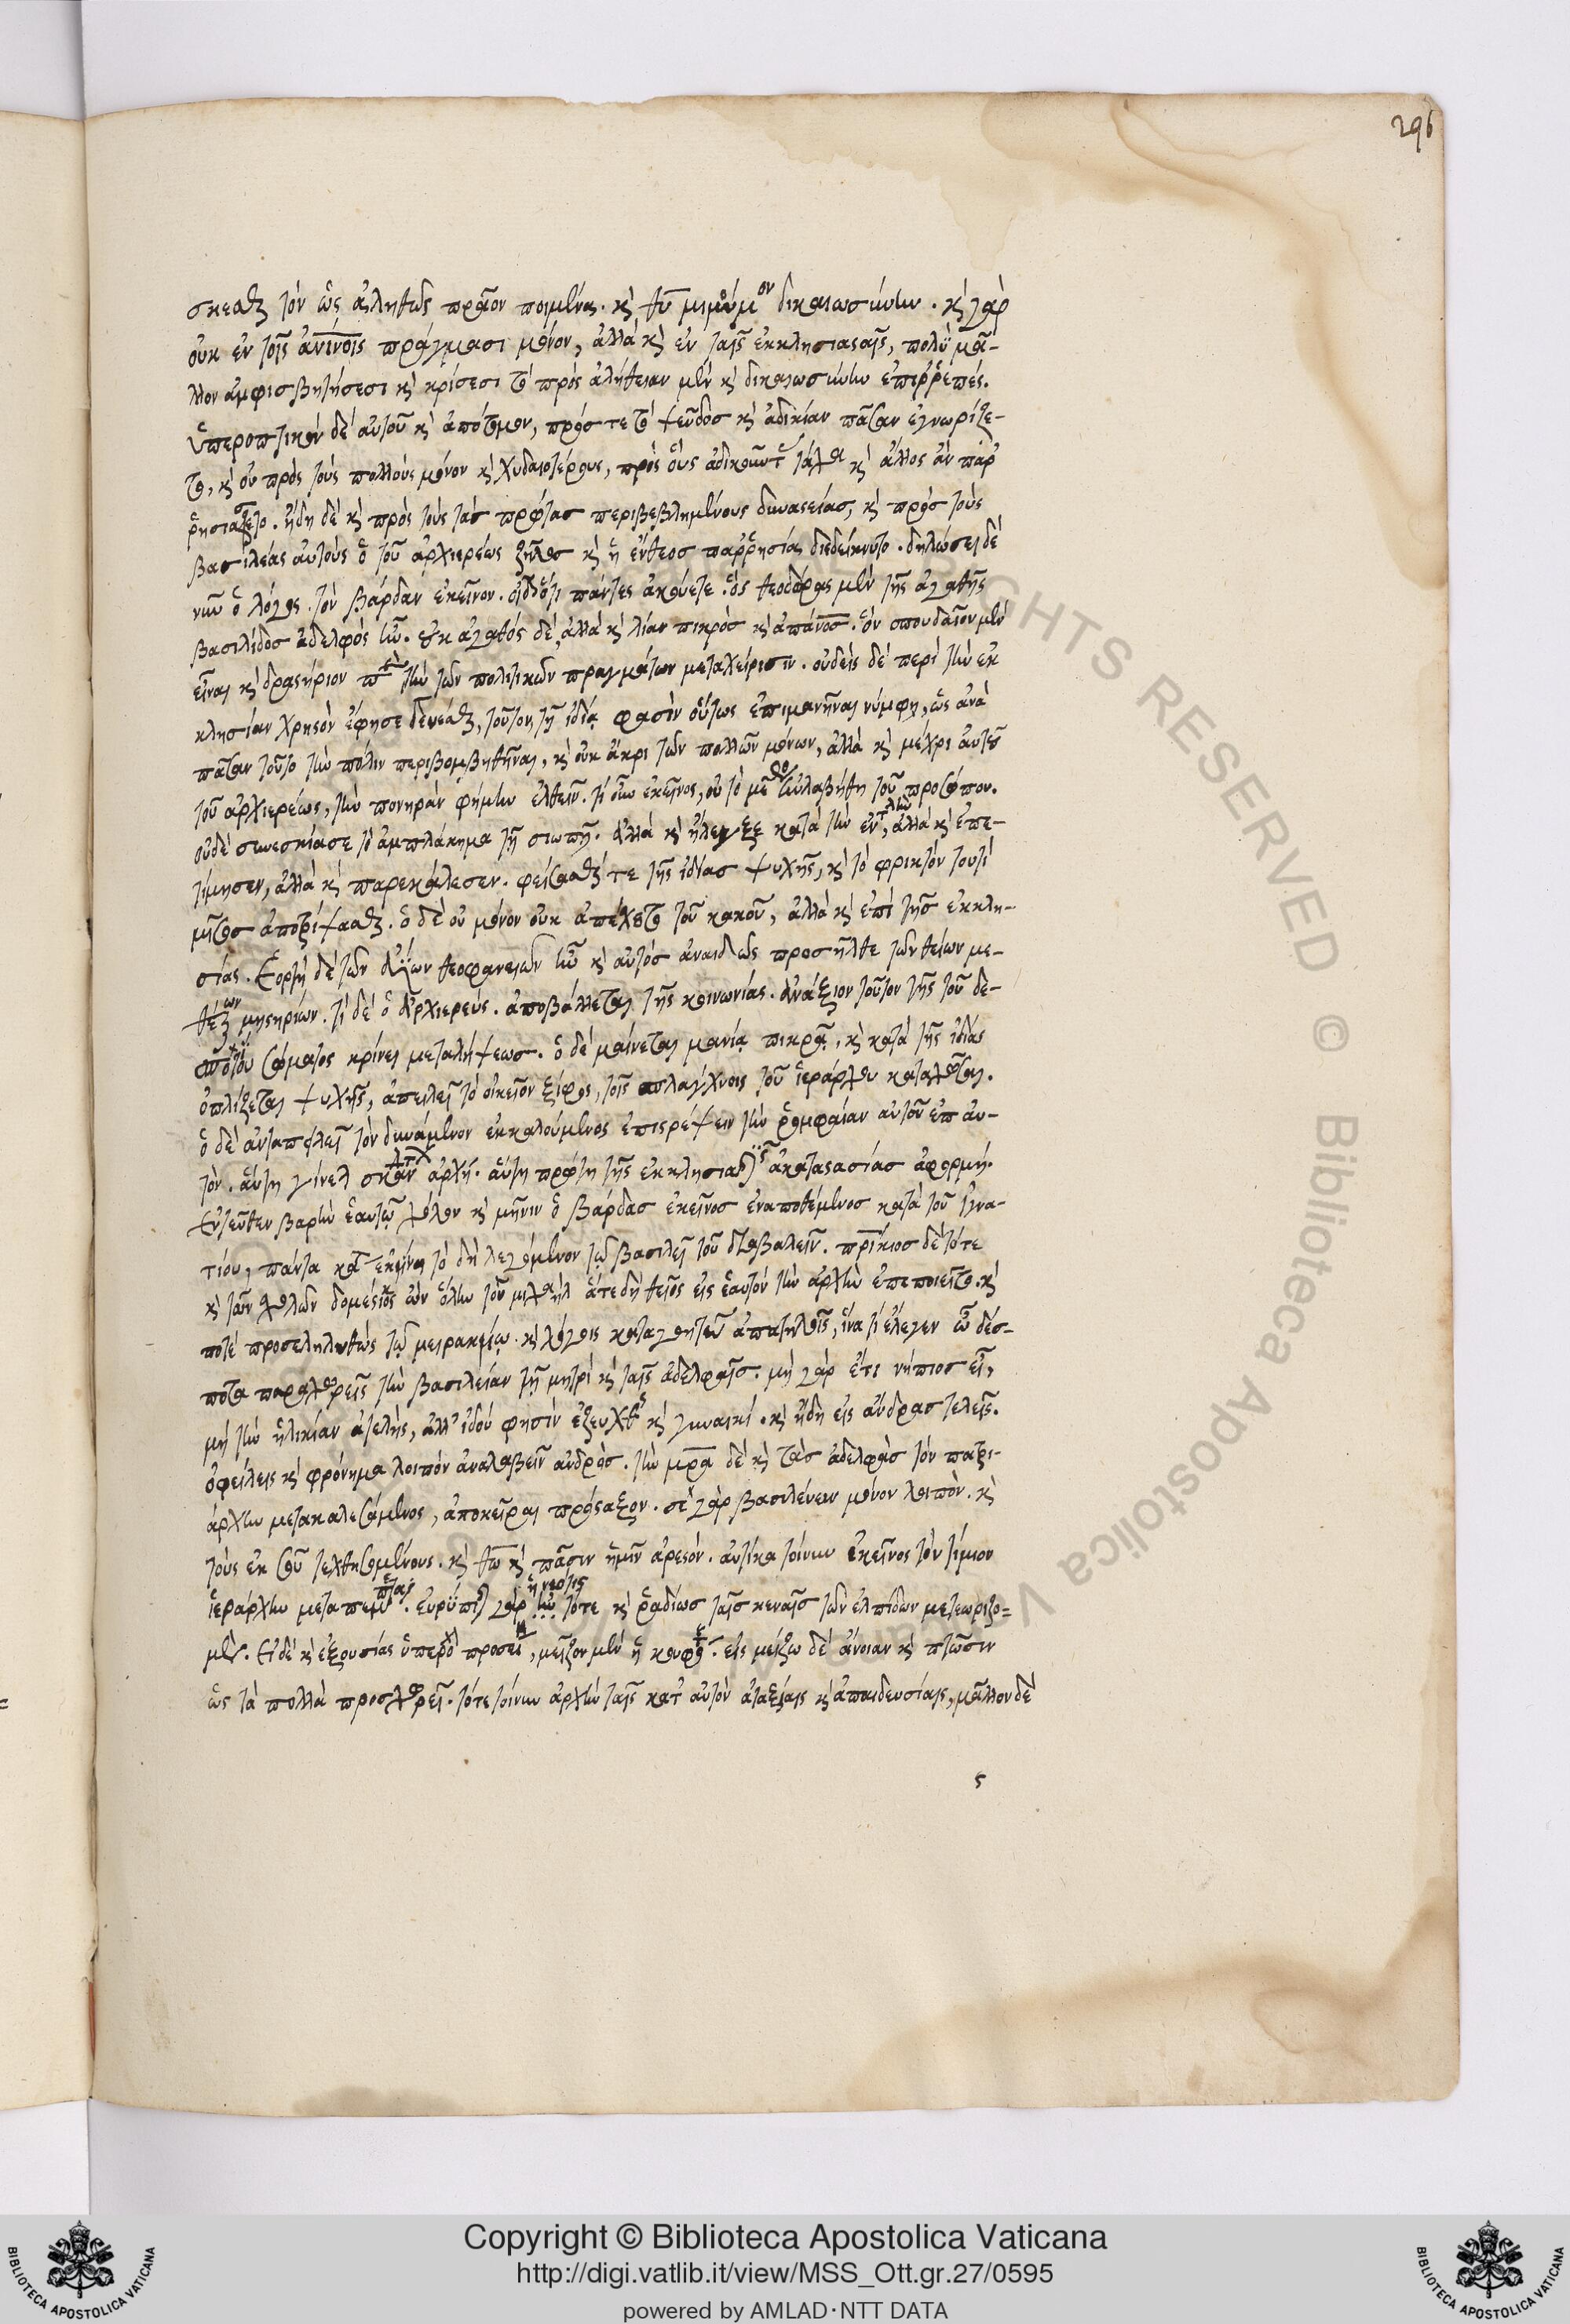 296
σκεσθαι τὸν ὡς ἀληθῶς πρᾶον ποιμένα. κὶ θῦ μιμούμενον δικαιοσύνην. κὶ γὰρ
οὐκ ἐν τοῖς ἀνίνοις πράγμασι μόνον, ἀλλὰ κὶ ἐν ταῖς ἐκκλησιαστικαῖς, πολὺ μᾶ-
λλον ἀμφισβητήσεσι κὶ κρίσεσι τὸ πρὸς ἀλήθειαν μὲν κὶ δικαιοσύνην ἐπιρρεπές.
ὑπεροπτικὸν δὲ αὐτοῦ κὶ ἀπότομον, πρός τε τὸ ψεῦδος κὶ ἀδικίαν πᾶσαν ἐγνωρίζε-
το, κὶ οὐ πρὸς τοὺς πολλοὺς μόνον κὶ χυδαιοτέρους, πρὸς οὓς ἀδικοῦντας τάχα κὶ ἄλλος ἂν παρ
ρησιάσαιτο. ἤδη δὲ κὶ πρὸς τοὺς τὰς πρώτας περιβεβλημένους δυναστείας, κὶ πρὸς τοὺς
βασιλέας αὐτοὺς ὁ τοῦ ἀρχιερέως ζῆλος κὶ ἡ ἔνθεος παρρησία διεδείκνυτο. δηλώσει δὲ
νῦν ὁ λόγος. τὸν βάρδαν ἐκεῖνον. οἶδ' ὅτι πάντες ἀκούετε. ὃς θεοδώρας μὲν τῆς ἀγαθῆς
βασιλίδος ἀδελφὸς ἦν. οὐκ ἀγαθὸς δὲ, ἀλλὰ κὶ λίαν πικρὸς κὶ ἀπάνος. ὃν σπουδαῖον μὲν
εἶναι κὶ δραστήριον περὶ τὴν τῶν πολιτικῶν πραγμάτων μεταχείρισιν. οὐδεὶς δὲ περὶ τὴν ἐκ
κλησίαν χρηστὸν ἔφησε γενέσθαι, τοῦτον, τῇ ἰδίᾳ φασὶν οὕτως ἐπιμανῆναι νύμφῃ, ὡς ἀνὰ
πᾶσαν τοῦτο τὴν πόλιν περιβομβηθῆναι, κὶ οὐκ ἄχρι τῶν πολλῶν μόνων, ἀλλὰ κὶ μέχρι αὐτοῦ
τοῦ ἀρχιερέως, τὴν πονηρὰν φήμην ἐλθεῖν. τί οὖν ἐκεῖνος, οὐ τὸ μέγεθος εὐλαβήθη τοῦ προσώπου.
οὐδὲ συνεσκίασε τὸ ἀμπλάκημα τῇ σιωπῇ. ἀλλὰ κὶ ἤλεγξε κατὰ τὴν ἐντολὴν, ἀλλὰ κὶ ἐπε-
τίμησεν, ἀλλὰ κὶ παρεκάλεσεν. φείσασθαί τε τῆς ἰδίας ψυχῆς, κὶ τὸ φρικτὸν τουτὶ
μῖσος ἀποτρίψασθαι. ὁ δὲ οὐ μόνον οὐκ ἀπέχετο τοῦ κακοῦ, ἀλλὰ κὶ ἐπὶ τῆς ἐκκλη-
σίας. ἑορτὴ δὲ τῶν ἁγίων θεοφανειῶν ἦν κὶ αὐτὸς ἀναιδῶς προσῆλθε τῶν θείων με-
θέξων μυστηρίων. τί δὲ ὁ ἀρχιερεύς. ἀποβάλλεται τῆς κοινωνίας. ἀνάξιον τοῦτον τῆς τοῦ δε-
σποτικοῦ σώματος κρίνει μεταλήψεως. ὁ δὲ μαίνεται μανίᾳ πικρᾷ, κὶ κατὰ τῆς ἰδίας
ὁπλίζεται ψυχῆς, ἀπειλεῖ τὸ οἰκεῖον ξίφος, τοῖς σπλάγχνοις τοῦ ἱεράρχου καταχῶσαι.
ὁ δὲ ἀνταπειλεῖ τὸν δυνάμενον ἐκκαλούμενος ἐπιστρέψειν τὴν ῥομφαίαν αὐτοῦ ἐπ αὐ-
τόν. αὕτη γίνεται σκανδάλων ἀρχή. αὕτη πρώτη τῆς ἐκκλησιαστικῆς ἀκαταστασίας ἀφορμή.
ἐντεῦθεν βαρὺν ἑαυτῷ χόλον κὶ μῆνιν ὁ βάρδας ἐκεῖνος ἐναποθέμενος κατὰ τοῦ ἰγνα-
τίου, πάντα κάλων ἐκίνει τὸ δὴ λεγόμενον τῷ βασιλεῖ τοῦ διαβαλεῖν. πρίκιος δὲ τότε
κὶ τῶν σχολῶν δομέστικος ὢν ὅλην τοῦ μιχαὴλ ἅτε δὴ θεῖος εἰς ἑαυτὸν τὴν ἀρχὴν ἐπεποιεῖτο. κὶ
ποτὲ προσεληλυθὼς τῷ μειρακίῳ. κὶ λόγοις καταγοητεύων ἀπατηλοῖς, ἵνα τί ἔλεγεν ὦ δέσ-
ποτα παραχωρεῖς τὴν βασιλείαν τῇ μητρὶ κὶ ταῖς ἀδελφαῖς. μὴ γὰρ ἔτι νήπιος εἶ,
μὴ τὴν ἡλικίαν ἀτελής, ἀλλ' ἰδού φησιν ἐζεύχθης κὶ γυναικί. κὶ ἤδη εἰς ἄνδρας τελεῖς.
ὀφείλεις κὶ φρόνημα λοιπὸν ἀναλαβεῖν ἀνδρός. τὴν μρα δὲ κὶ τὰς ἀδελφὰς τὸν πατρι-
άρχην μετακαλεσάμενος, ἀποκεῖραι πρόσταξον. σὲ γὰρ βασιλεύειν μόνον λοιπόν. κὶ
τοὺς ἐκ σοῦ τεχθησομένους. κὶ θω κὶ πᾶσιν ἡμῖν ἀρεστόν. αὐτίκα τοίνυν ἐκεῖνος τὸν τίμιον
ἱεράρχην μεταπέμπεται. εὐρύπιστος γὰρ ἡ νεότης τότε κὶ ῥαδίως ταῖς κεναῖς τῶν ἐλπίδων μετεωριζο=
μένη. εἰ δὲ κὶ ἐξουσίας ὑπεροχὴ προσείη, μεῖζον μὲν ἡ κουφότης. εἰς μείζω δὲ ἄνοιαν κὶ πτῶσιν
ὡς τὰ πολλὰ προσχωρεῖ. τότε τοίνυν ἀρχὴν ταῖς κατ' αὐτὸν ἀταξίαις κὶ ἀπαιδευσίαις, μᾶλλον δὲ
ς
Copyright © Biblioteca Apostolica Vaticana
http://digi.vatlib.it/view/MSS_Ott.gr.27/0595
powered by AMLAD·NTT DATA